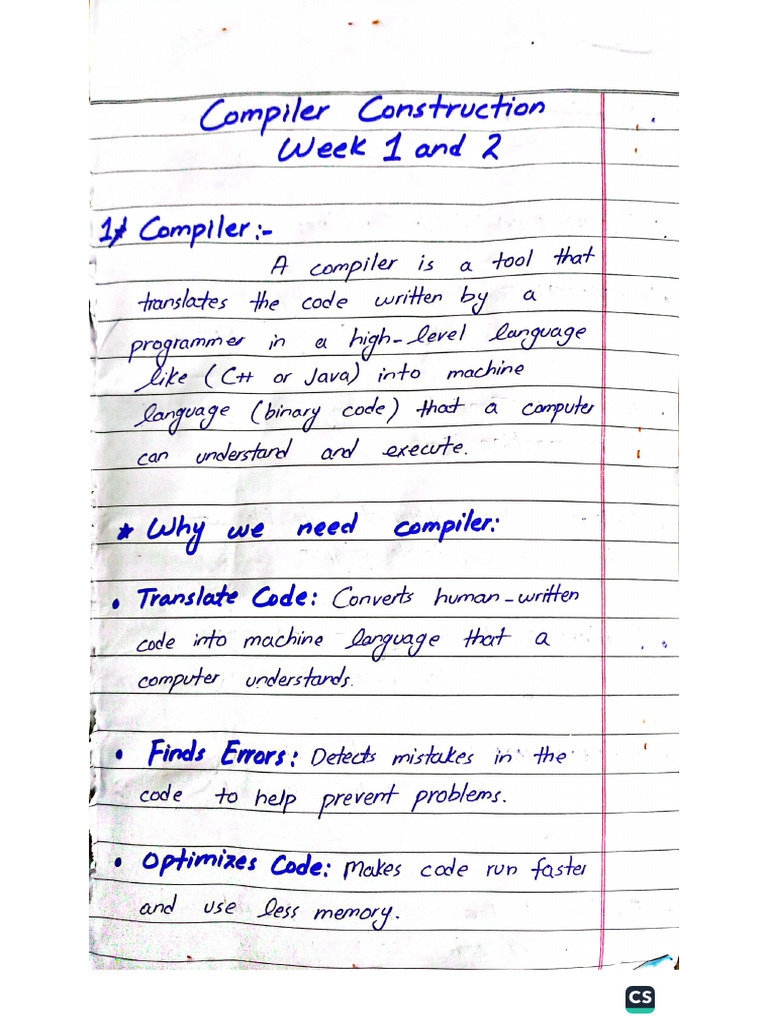 Compiler Construction
Week 1 and 2
1* Compiler:-
A compiler is a tool that
translates the code written by a
programmer in a high-level language
like (C++ or Java) into machine
language (binary code) that a computer
can understand and execute.
* Why we need compiler:
• Translate Code: Converts human-written
code into machine language that a
computer understands.
• Finds Errors: Detects mistakes in the
code to help prevent problems.
• Optimizes Code: Makes code run faster
and use less memory.
CS